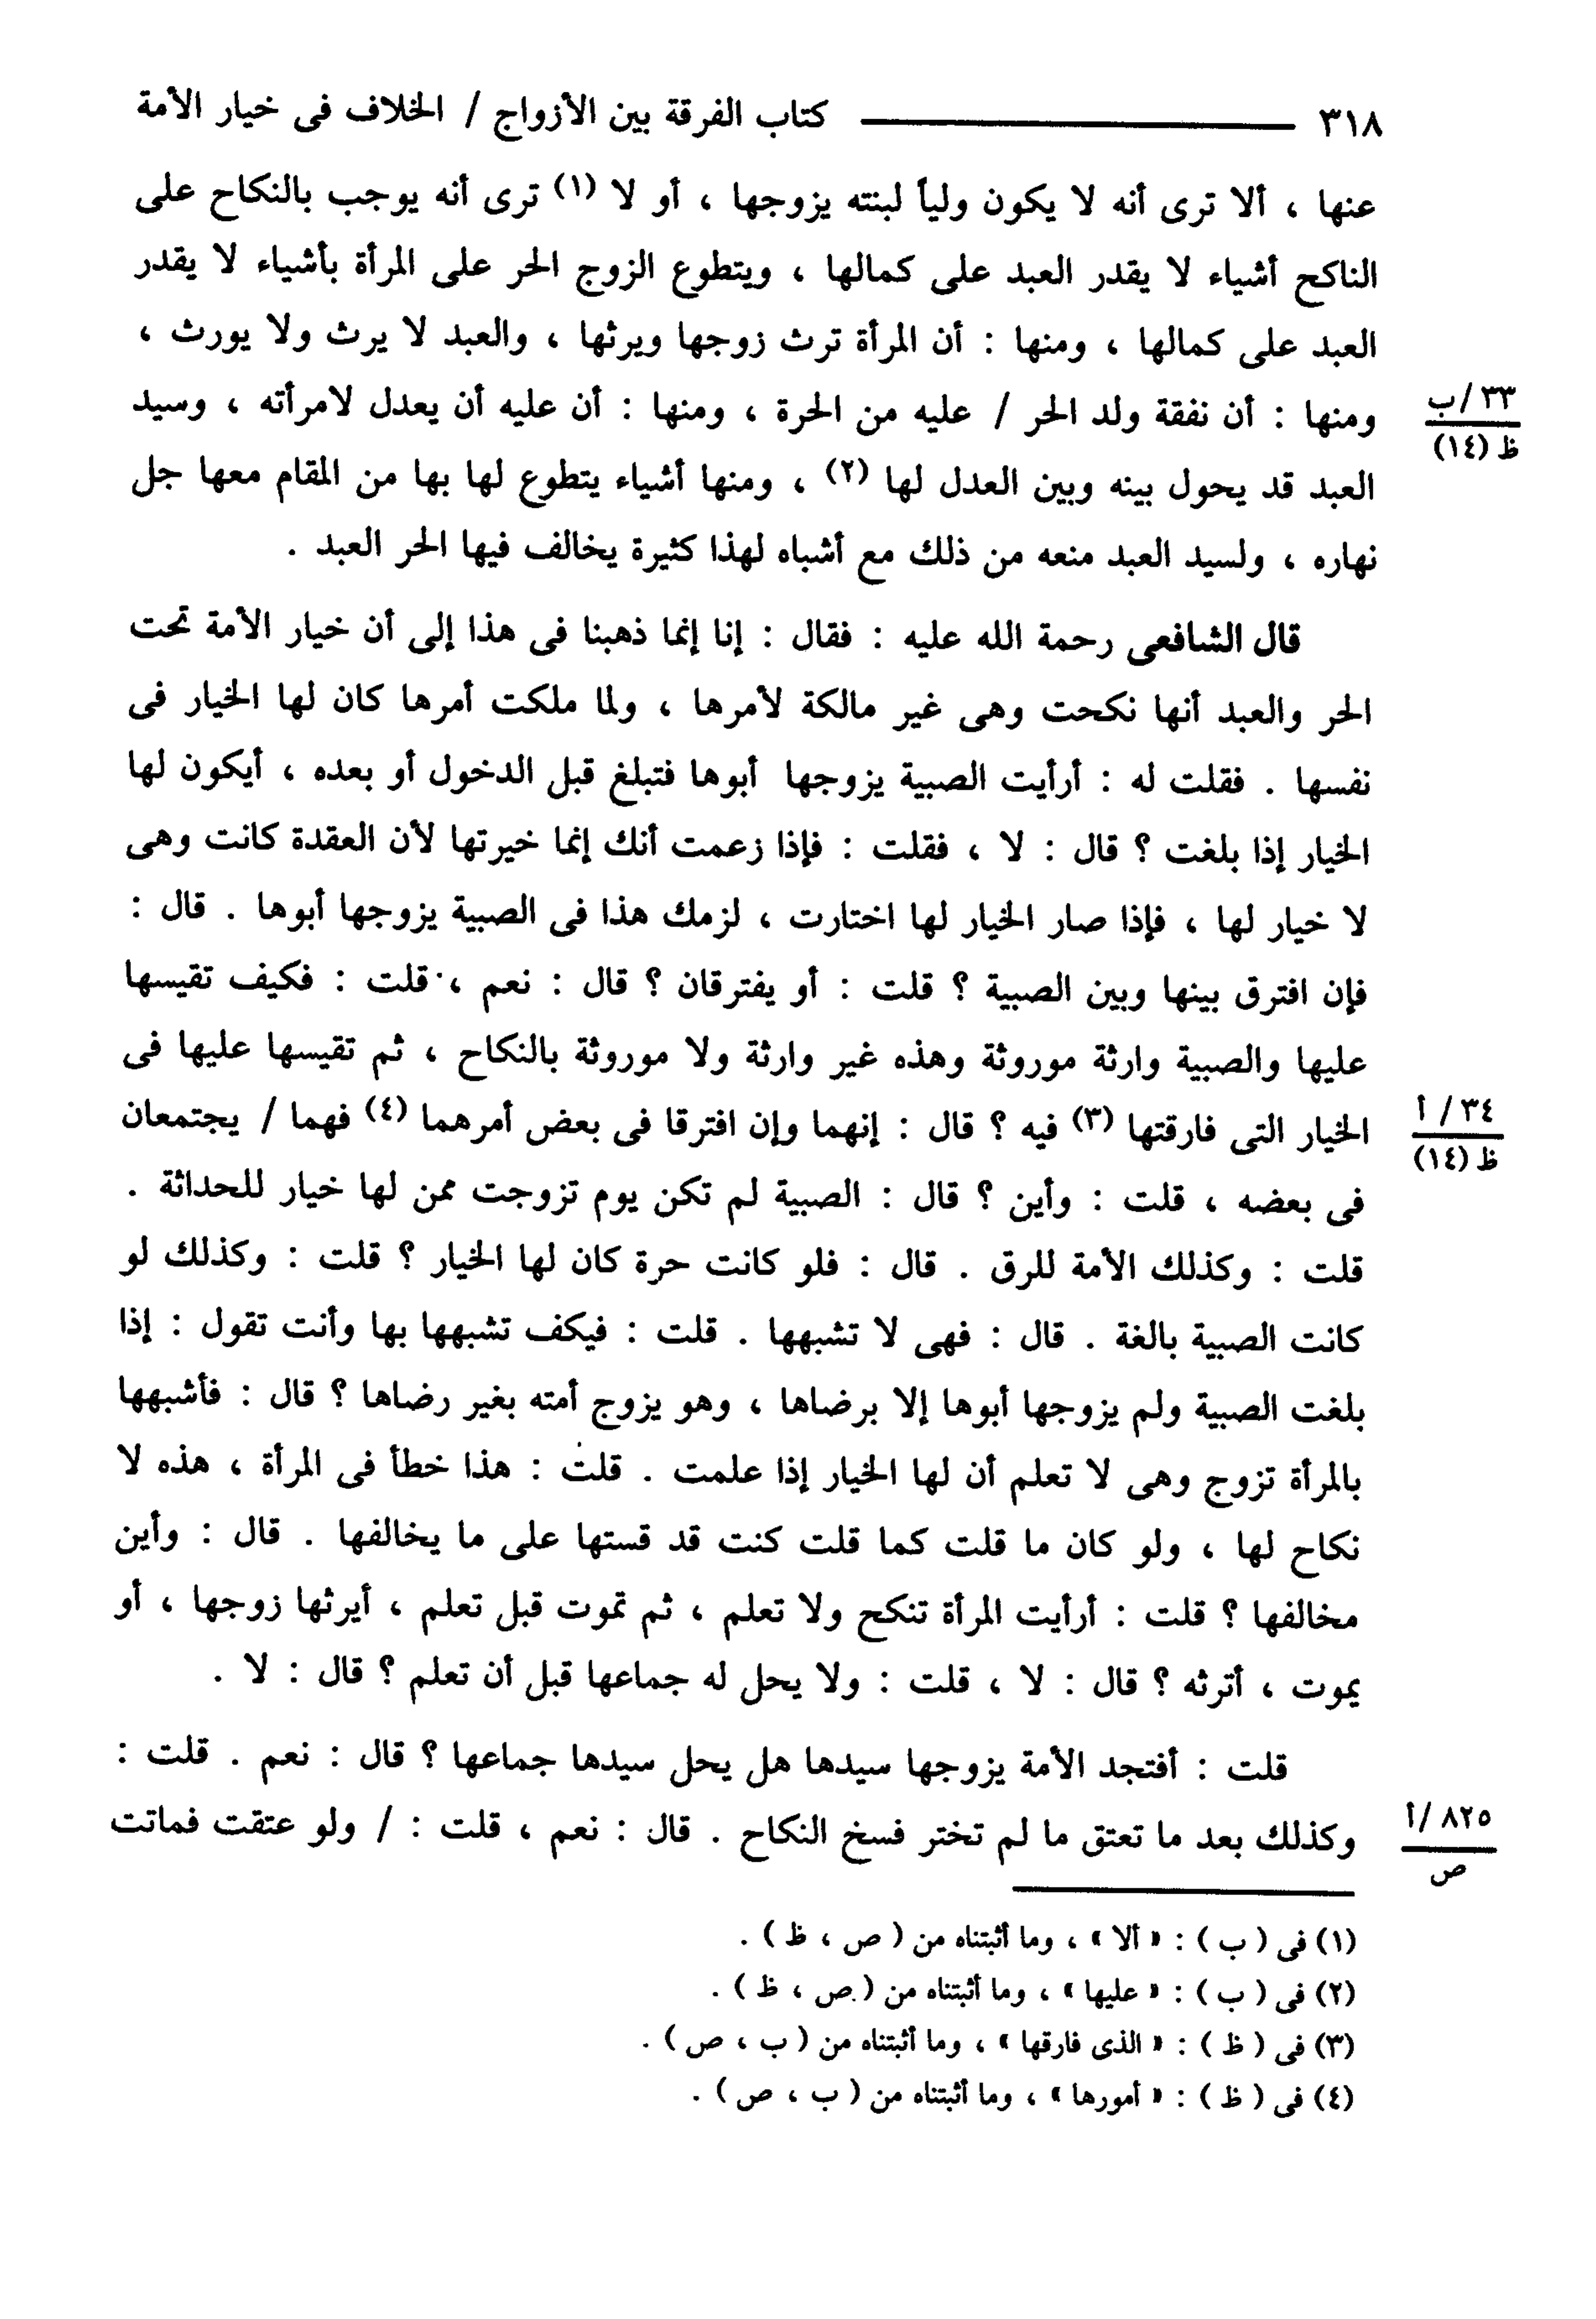 ٣١٨ ــــــــــــــــ كتاب الفرقة بين الأزواج / الخلاف فى خيار الأمة
عنها ، ألا ترى أنه لا يكون ولياً لبنته يزوجها ، أو لا (١) ترى أنه يوجب بالنكاح على
الناكح أشياء لا يقدر العبد على كمالها ، ويتطوع الزوج الحر على المرأة بأشياء لا يقدر
العبد على كمالها ، ومنها : أن المرأة ترث زوجها ويرثها ، والعبد لا يرث ولا يورث ،
ومنها : أن نفقة ولد الحر / عليه من الحرة ، ومنها : أن عليه أن يعدل لامرأته ، وسيد
٣٣ /ب
ظ (١٤)
العبد قد يحول بينه وبين العدل لها (٢) ، ومنها أشياء يتطوع لها بها من المقام معها جل
نهاره ، ولسيد العبد منعه من ذلك مع أشباه لهذا كثيرة يخالف فيها الحر العبد .
قال الشافعى رحمة الله عليه : فقال : إنا إنما ذهبنا فى هذا إلى أن خيار الأمة تحت
الحر والعبد أنها نكحت وهى غير مالكة لأمرها ، ولما ملكت أمرها كان لها الخيار فى
نفسها . فقلت له : أرأيت الصبية يزوجها أبوها فتبلغ قبل الدخول أو بعده ، أيكون لها
الخيار إذا بلغت ؟ قال : لا ، فقلت : فإذا زعمت أنك إنما خيرتها لأن العقدة كانت وهى
لا خيار لها ، فإذا صار الخيار لها اختارت ، لزمك هذا فى الصبية يزوجها أبوها . قال :
فإن افترق بينها وبين الصبية ؟ قلت : أو يفترقان ؟ قال : نعم ، قلت : فكيف تقيسها
عليها والصبية وارثة موروثة وهذه غير وارثة ولا موروثة بالنكاح ، ثم تقيسها عليها فى
الخيار التى فارقتها (٣) فيه ؟ قال : إنهما وإن افترقا فى بعض أمرهما (٤) فهما / يجتمعان
٣٤ / أ
ظ (١٤)
فى بعضه ، قلت : وأين ؟ قال : الصبية لم تكن يوم تزوجت ممن لها خيار للحداثة .
قلت : وكذلك الأمة للرق . قال : فلو كانت حرة كان لها الخيار ؟ قلت : وكذلك لو
كانت الصبية بالغة . قال : فهى لا تشبهها . قلت : فيكف تشبهها بها وأنت تقول : إذا
بلغت الصبية ولم يزوجها أبوها إلا برضاها ، وهو يزوج أمته بغير رضاها ؟ قال : فأشبهها
بالمرأة تزوج وهى لا تعلم أن لها الخيار إذا علمت . قلت : هذا خطأ فى المرأة ، هذه لا
نكاح لها ، ولو كان ما قلت كما قلت كنت قد قستها على ما يخالفها . قال : وأين
مخالفها ؟ قلت : أرأيت المرأة تنكح ولا تعلم ، ثم تموت قبل تعلم ، أيرثها زوجها ، أو
يموت ، أترثه ؟ قال : لا ، قلت : ولا يحل له جماعها قبل أن تعلم ؟ قال : لا .
قلت : أفتجد الأمة يزوجها سيدها هل يحل سيدها جماعها ؟ قال : نعم . قلت :
وكذلك بعد ما تعتق ما لم تختر فسخ النكاح . قال : نعم ، قلت : / ولو عتقت فماتت
٨٢٥ /أ
ص
(١) فى ( ب ) : « ألا » ، وما أثبتناه من ( ص ، ظ ) .
(٢) فى ( ب ) : « عليها » ، وما أثبتناه من ( ص ، ظ ) .
(٣) فى ( ظ ) : « الذى فارقها » ، وما أثبتناه من ( ب ، ص ) .
(٤) فى ( ظ ) : « أمورها » ، وما أثبتناه من ( ب ، ص ) .